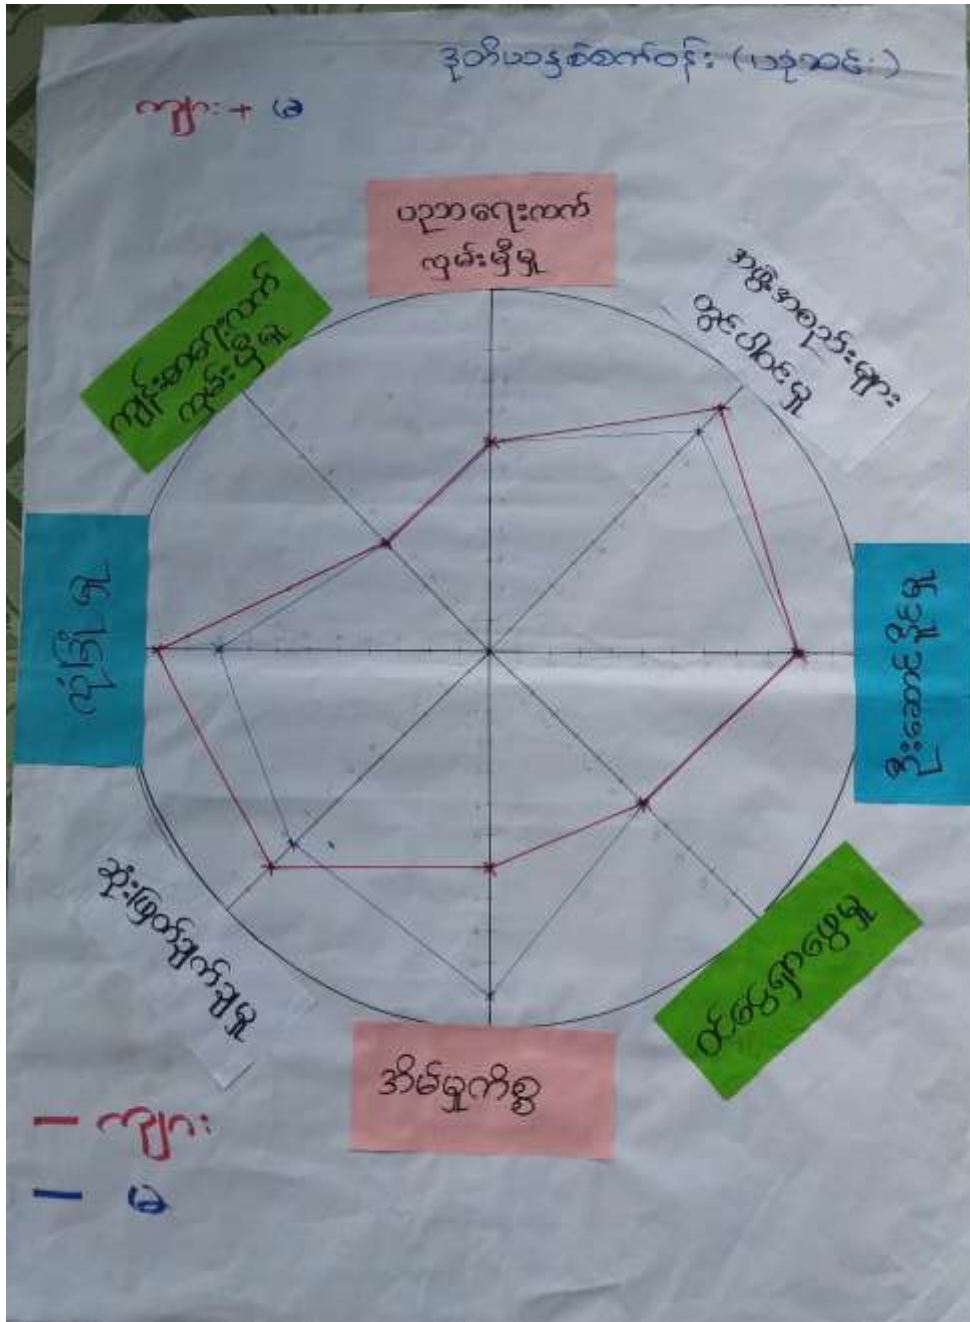 ဒုတိယနှစ်စက်ဝန်း (ပခုံဆင်း)
ကျား + မ
ပညာရေးလက်
လှမ်းမှီမှု
အဖွဲ့အစည်းများ
တွင်ပါဝင်မှု
ဦးဆောင်နိုင်မှု
ဝင်ငွေရှာဖွေမှု
အိမ်မှုကိစ္စ
ဆုံးဖြတ်ချက်ချမှု
လုံခြုံမှု
ကျန်းမာရေးလက်
လှမ်းမှီမှု
ကျား
မ